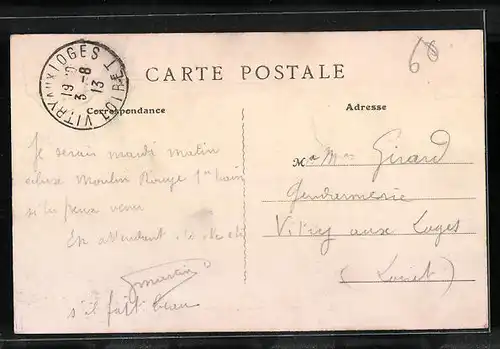 VITRY AUX LOGES LOIRET
19
3-8
13
68
CARTE POSTALE
Correspondance
Adresse
Je serais mardi matin
écluse Moulin Rouge 1er
si tu peux venir
En attendant
Martin
s'il fait beau
M Girard
Gendarmerie
Vitry aux Loges
(Loiret)